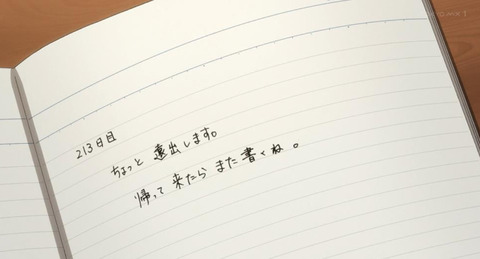 213日目
ちょっと 遠出します。
帰って 来たら また 書くね。